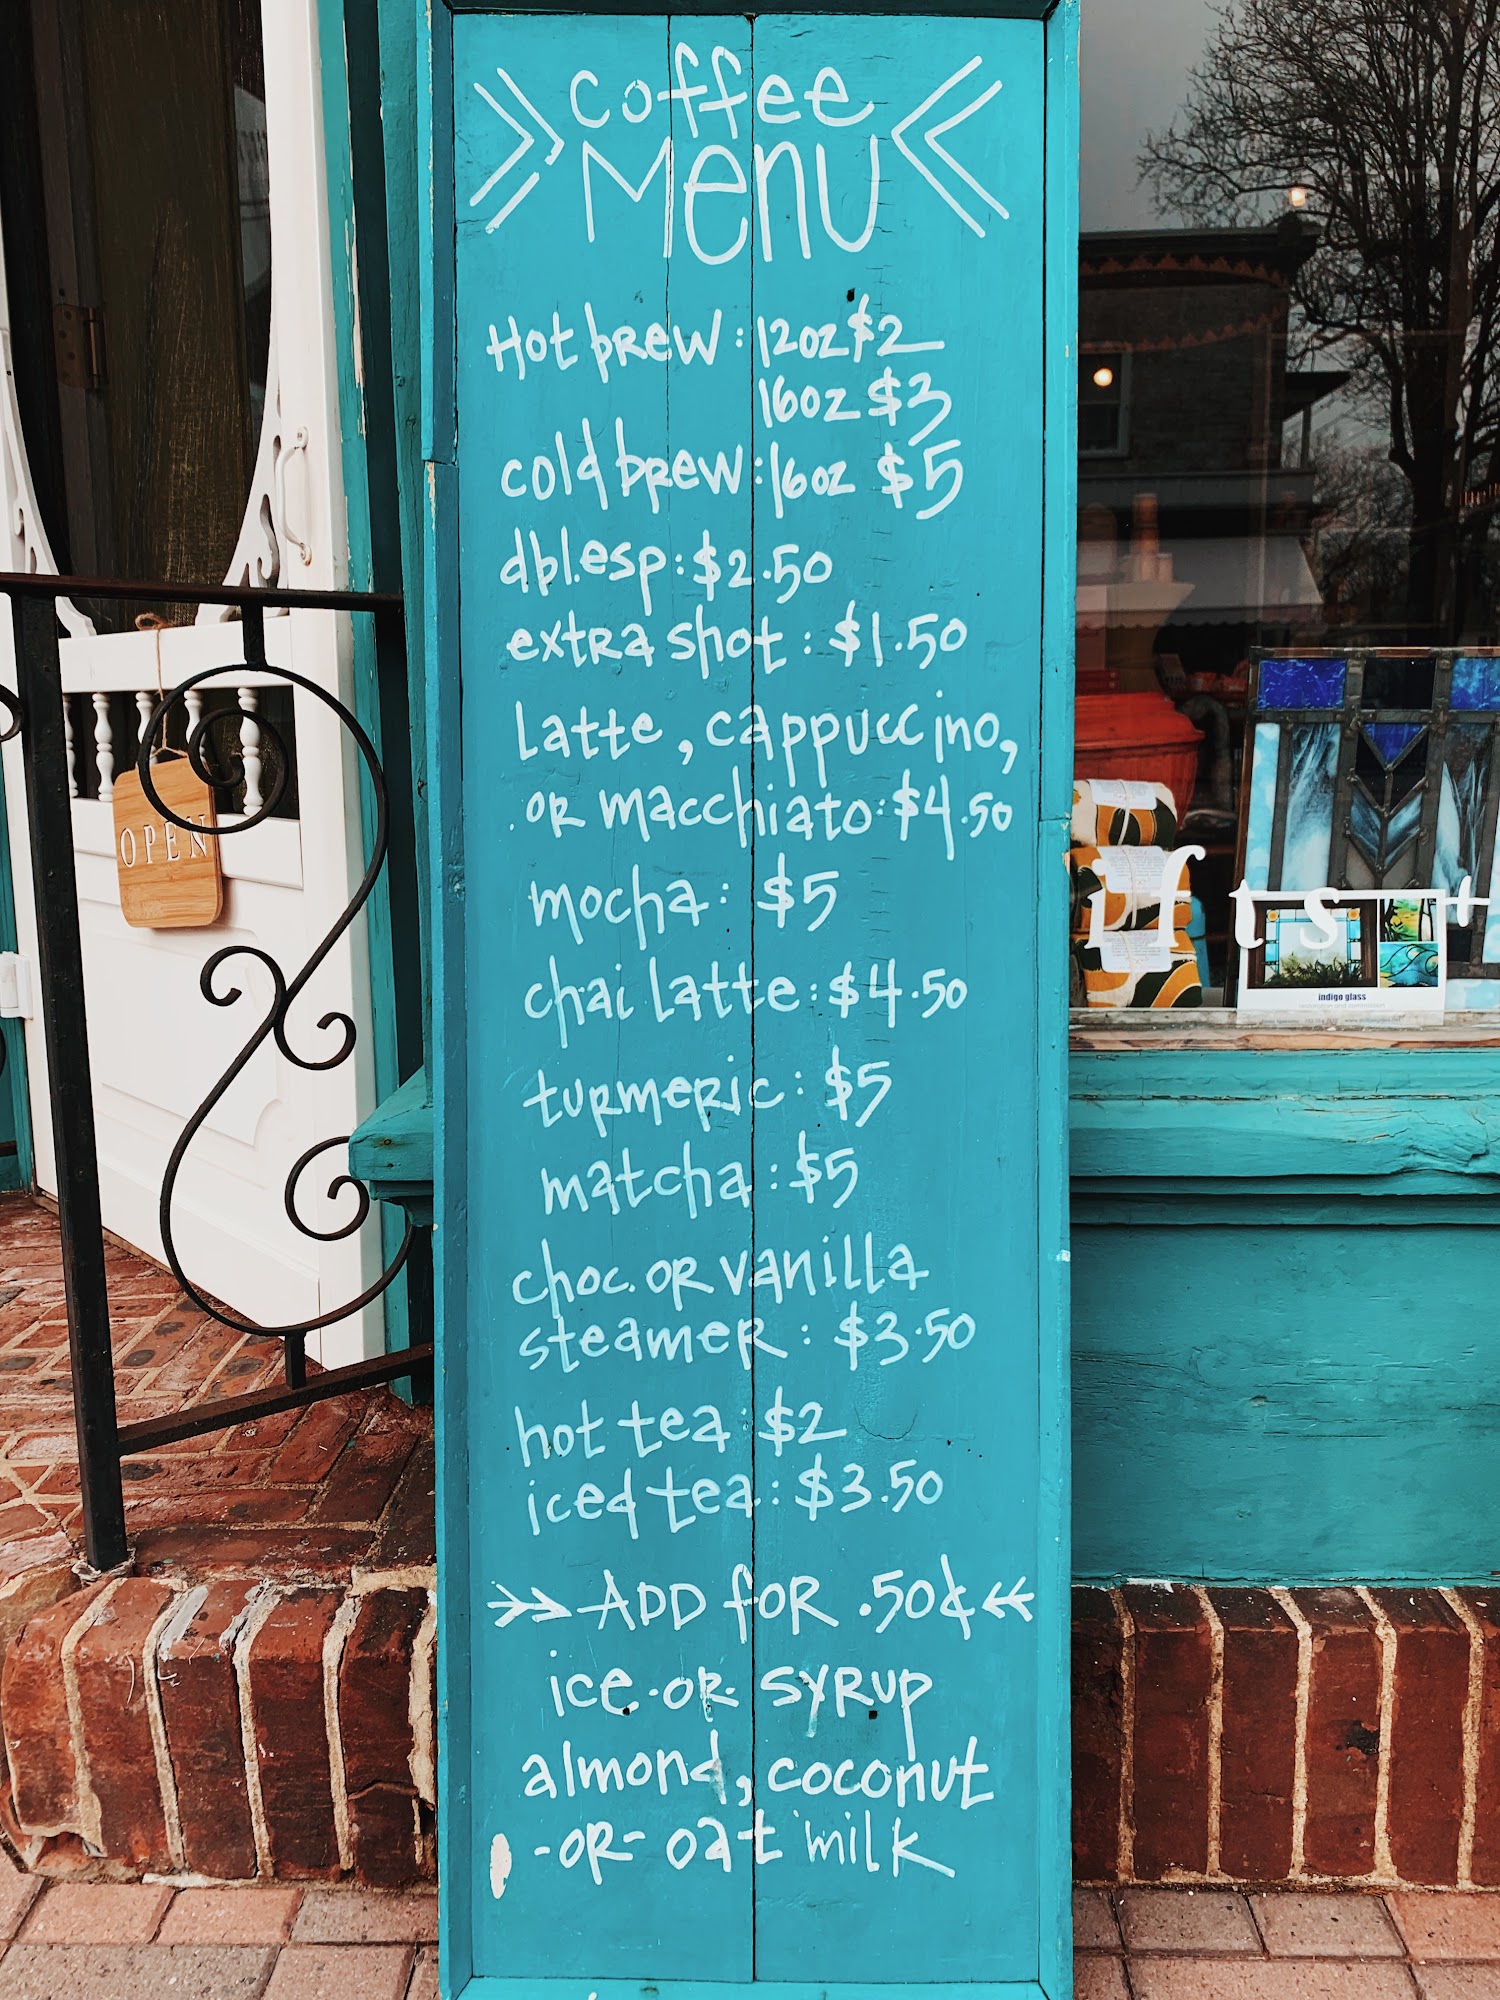 Coffee
Menu
Hot brew: 12oz $2
16oz $3
cold brew: 16oz $5
dbl.esp: $2.50
extra shot: $1.50
Latte, cappuccino,
or macchiato: $4.50
mocha: $5
chai Latte: $4.50
turmeric: $5
matcha: $5
choc. or vanilla
steamer: $3.50
hot tea: $2
iced tea: $3.50
ADD for .50¢
ice -or- syrup
almond, coconut
-or- oat milk
OPEN
ifts +
indigo glass